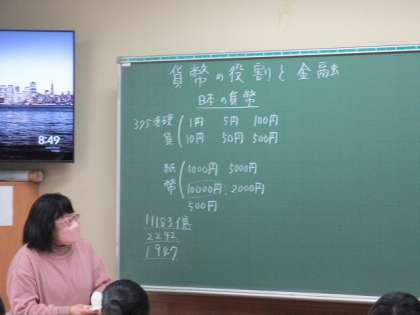 8:49
貨幣の役割と金融
日本の貨幣
硬 1円 5円 100円
貨 10円 50円 500円
紙 1000円 5000円
幣 10000円、2000円
500円
2242